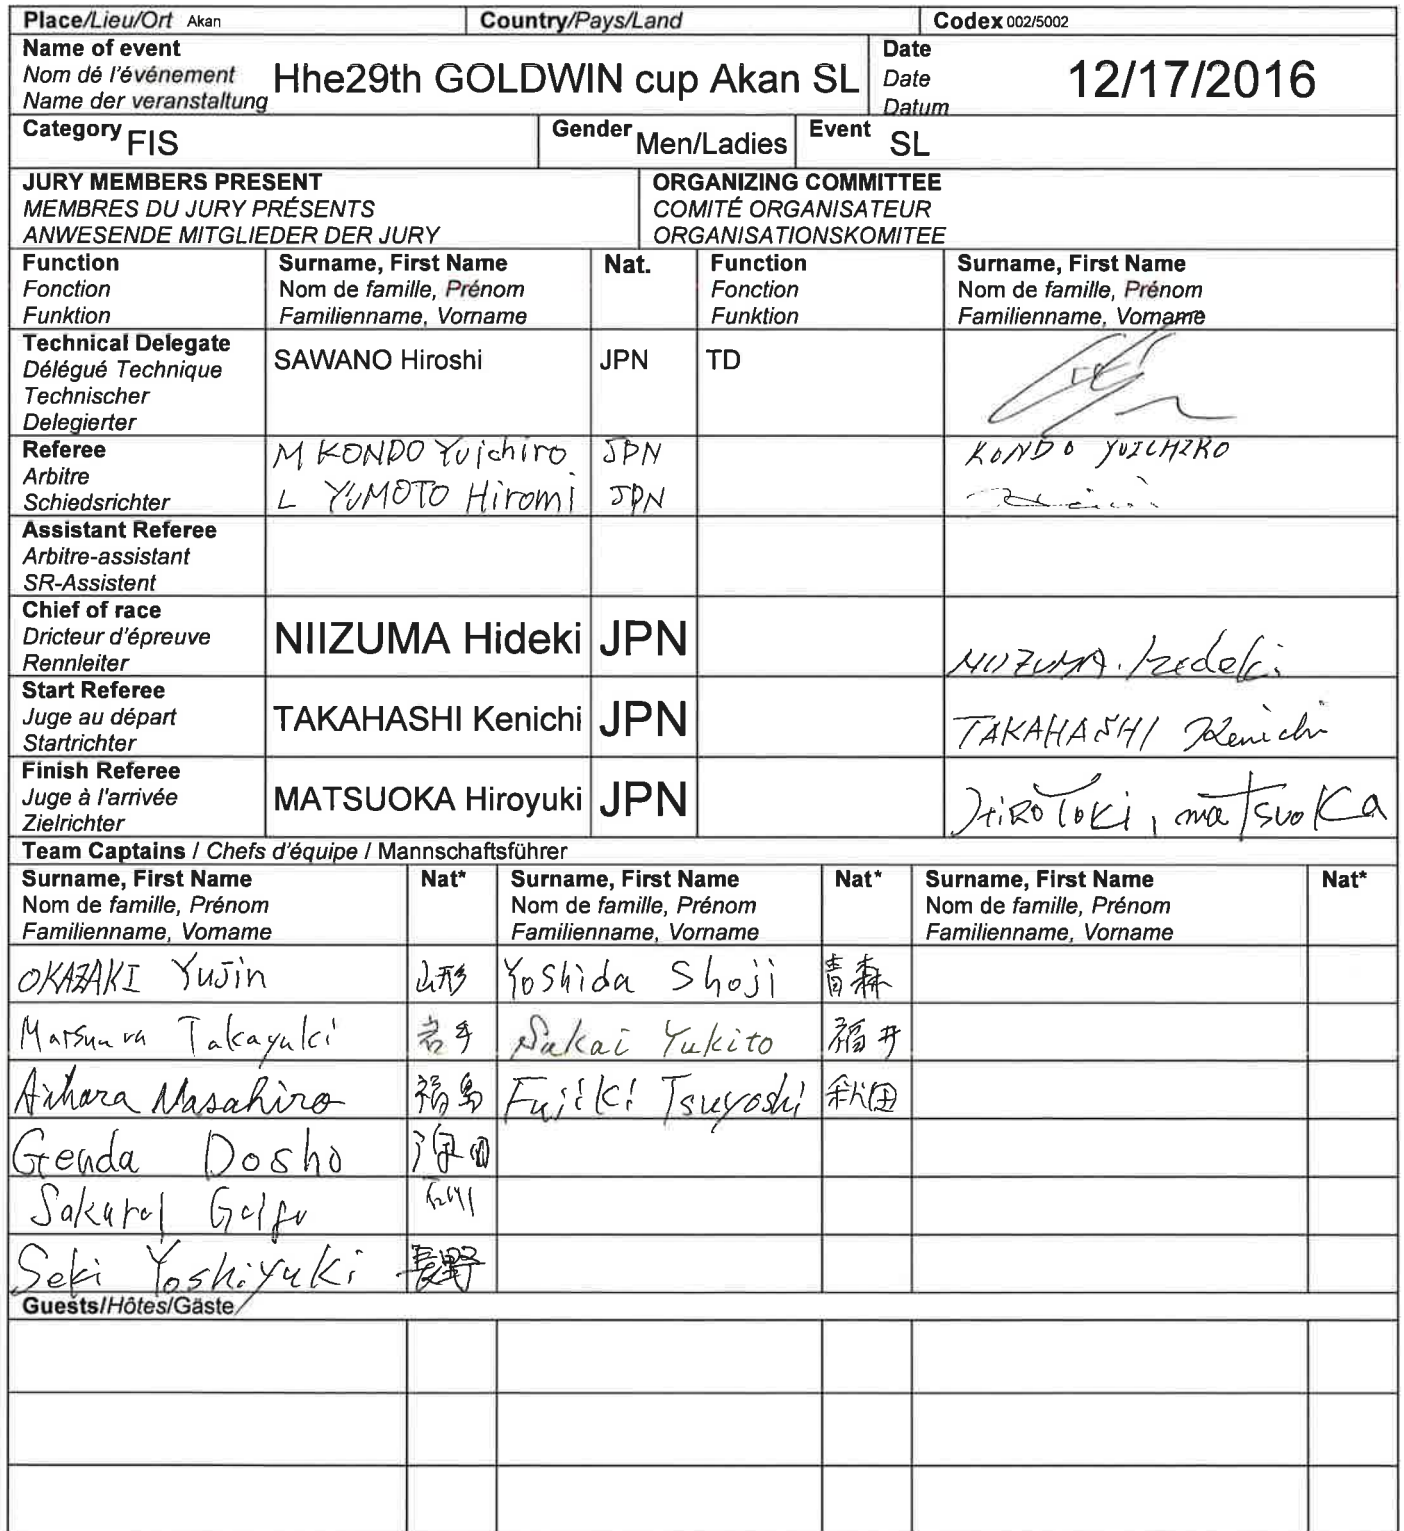 Place/Lieu/Ort Akan Country/Pays/Land Codex 002/5002
Name of event
Nom dé l'événement
Name der veranstaltung
Hhe29th GOLDWIN cup Akan SL
Date
Date
Datum
12/17/2016
Category FIS Gender Men/Ladies Event SL
JURY MEMBERS PRESENT
MEMBRES DU JURY PRÉSENTS
ANWESENDE MITGLIEDER DER JURY
ORGANIZING COMMITTEE
COMITÉ ORGANISATEUR
ORGANISATIONSKOMITEE
Function
Fonction
Funktion
Surname, First Name
Nom de famille, Prénom
Familienname, Vorname
Nat.
Function
Fonction
Funktion
Surname, First Name
Nom de famille, Prénom
Familienname, Vorname
Technical Delegate
Délégué Technique
Technischer
Delegierter
SAWANO Hiroshi JPN TD
Referee
Arbitre
Schiedsrichter
M KONDO Yuichiro JPN KONDO YUICHIRO
L YUMOTO Hiromi JPN
Assistant Referee
Arbitre-assistant
SR-Assistent
Chief of race
Dricteur d'épreuve
Rennleiter
NIIZUMA Hideki JPN NIIZUMA. Hideki
Start Referee
Juge au départ
Startrichter
TAKAHASHI Kenichi JPN TAKAHASHI Kenichi
Finish Referee
Juge à l'arrivée
Zielrichter
MATSUOKA Hiroyuki JPN HiROToKi, maTsuoKa
Team Captains / Chefs d'équipe / Mannschaftsführer
Surname, First Name
Nom de famille, Prénom
Familienname, Vorname
Nat*
Surname, First Name
Nom de famille, Prénom
Familienname, Vorname
Nat*
Surname, First Name
Nom de famille, Prénom
Familienname, Vorname
Nat*
OKAZAKI Yujin 山形 Yoshida Shoji 青森
Matsuura Takayuki 岩手 Sakai Yukito 福井
Aihara Masahiro 福島 Fujiki Tsuyoshi 秋田
Genda Dosho
Sakurai 石川
Seki Yoshiyuki 長野
Guests/Hôtes/Gäste